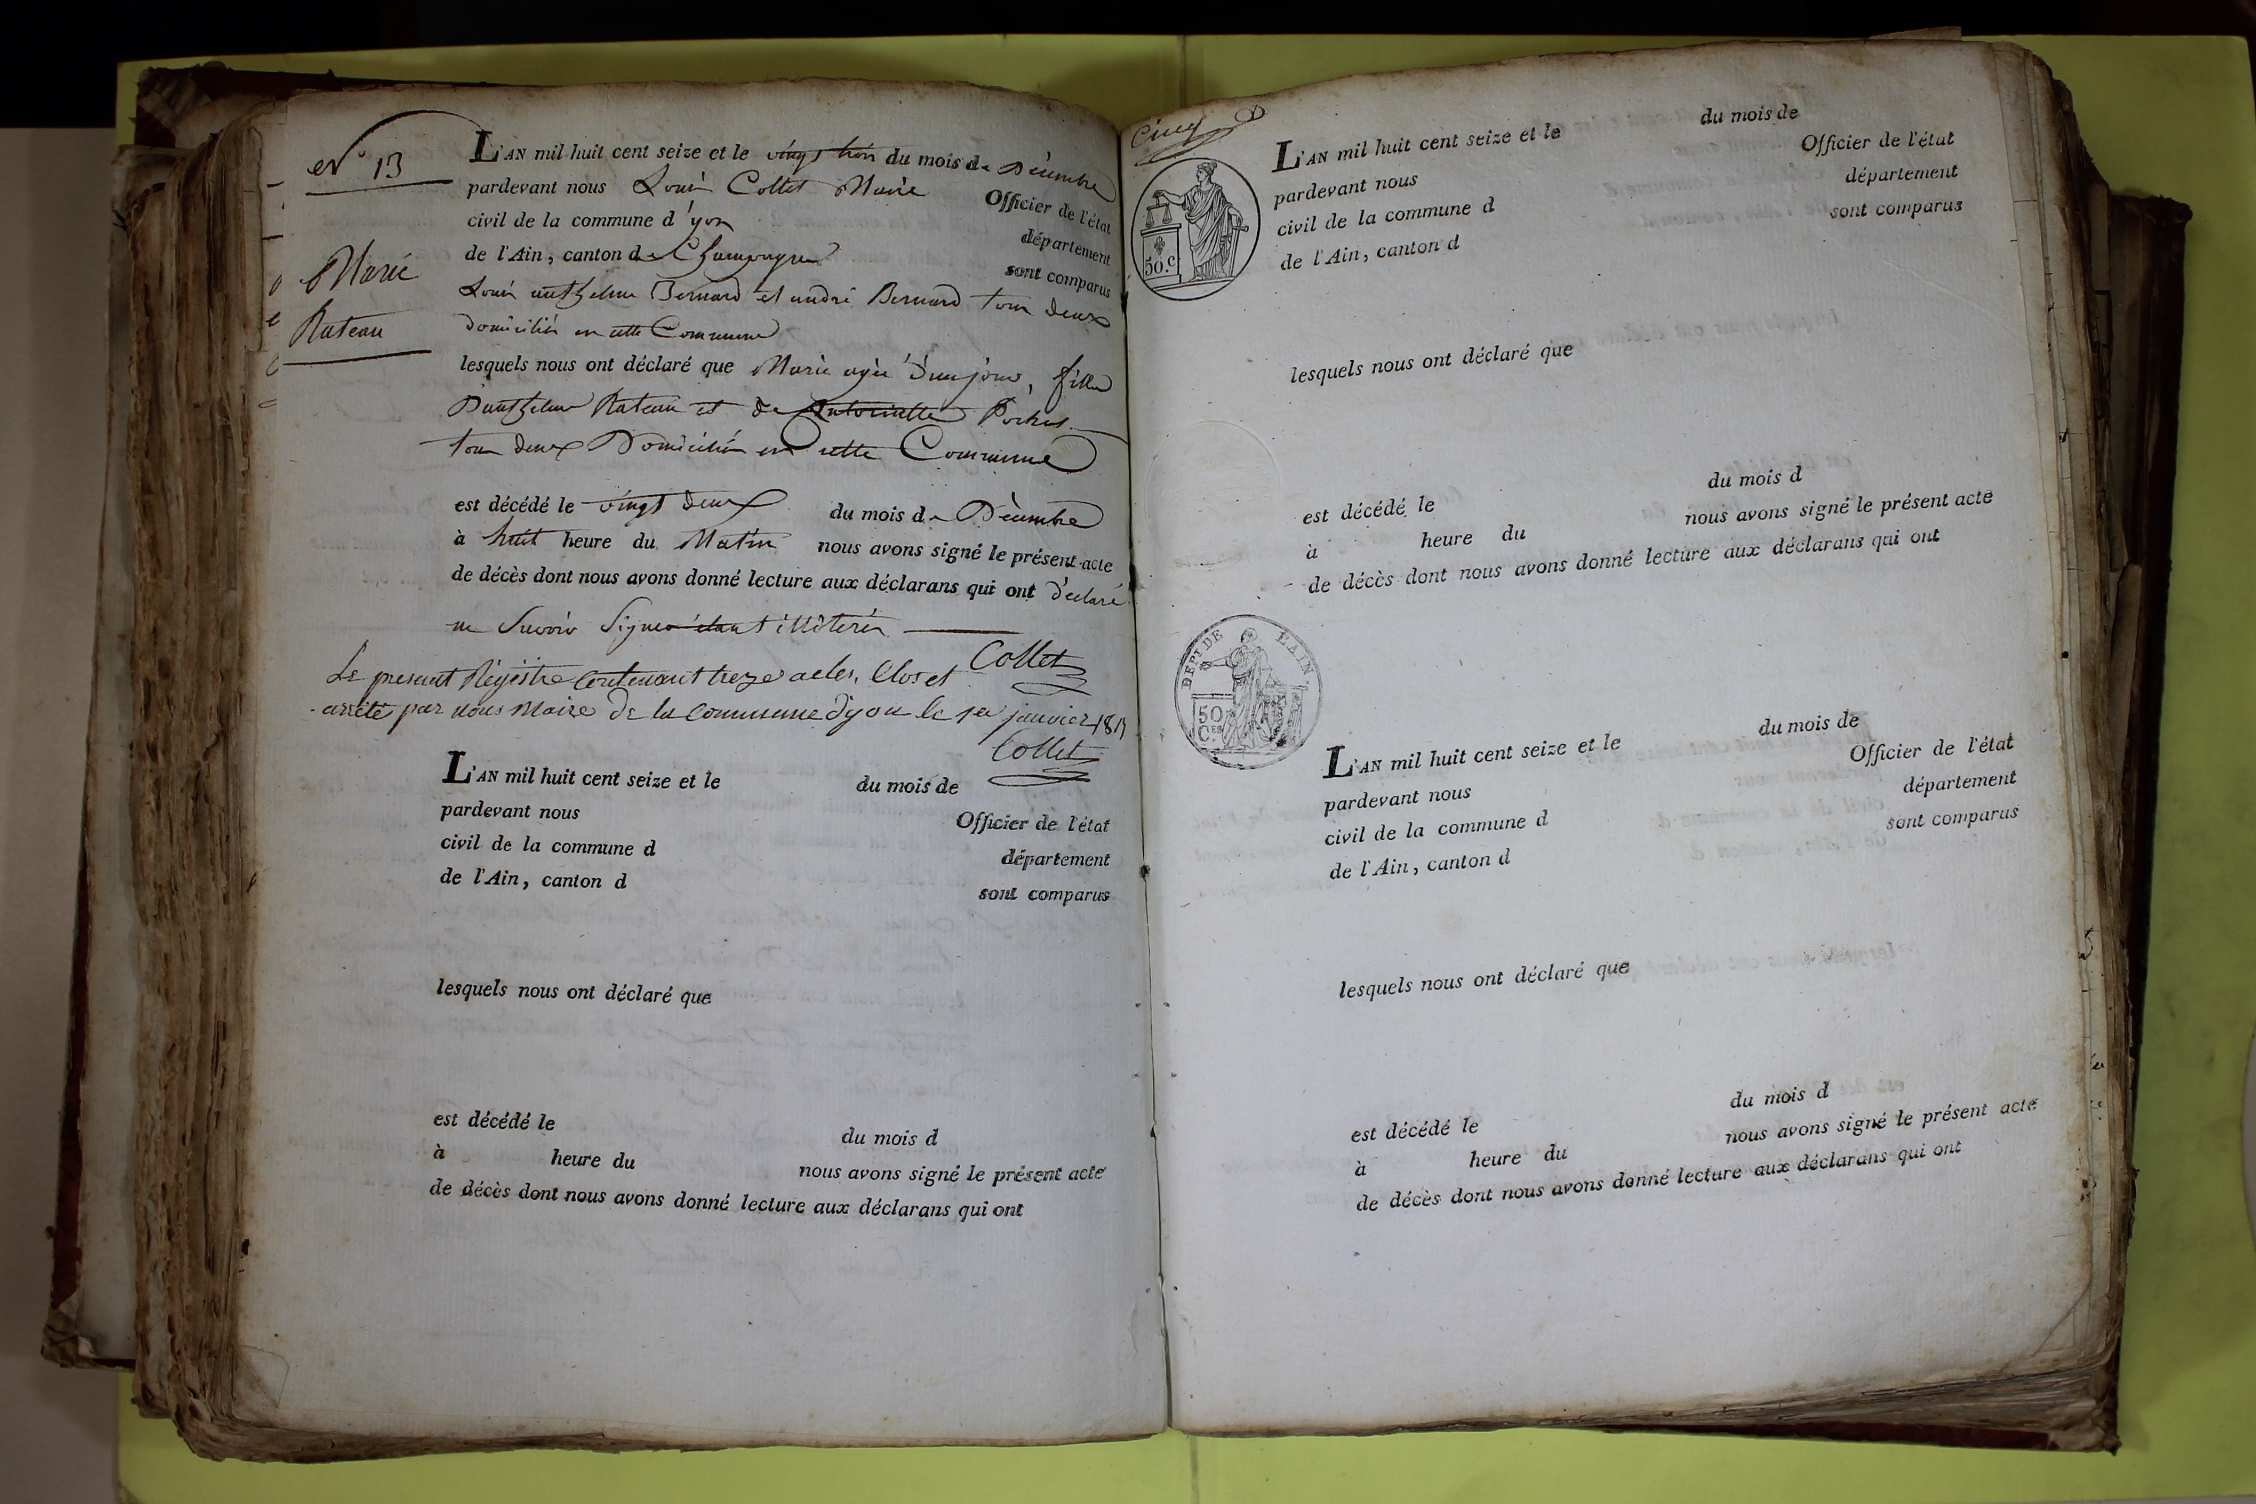 N° 13
Marie
Rateau
L'AN mil huit cent seize et le vingt trois du mois de Décembre
pardevant nous Louis Collet Maire Officier de l'état
civil de la commune d'yon département
de l'Ain, canton de Champagne sont comparus
Louis anthelme Bernard et andré Bernard tous deux
domiciliés en cette Commune
lesquels nous ont déclaré que Marie agée d'un jour, fille
Danthelme Rateau et de Antoinette
tous deux Domiciliés en cette Commune
est décédé le vingt deux du mois de Décembre
à huit heure du Matin nous avons signé le présent acte
de décès dont nous avons donné lecture aux déclarans qui ont déclaré
ne Savoir Signer étant illiterés
Collet
Le present Régistre Contenant treze actes, Clos et
arrêté par nous Maire de la Commune d'yon le 1er janvier 1817
Collet
L'AN mil huit cent seize et le du mois de
pardevant nous Officier de l'état
civil de la commune d département
de l'Ain, canton d sont comparus
lesquels nous ont déclaré que
est décédé le du mois d
à heure du nous avons signé le présent acte
de décès dont nous avons donné lecture aux déclarans qui ont
Cinq
50.c
L'AN mil huit cent seize et le du mois de
pardevant nous Officier de l'état
civil de la commune d département
de l'Ain, canton d sont comparus
lesquels nous ont déclaré que
est décédé le du mois d
à heure du nous avons signé le présent acte
de décès dont nous avons donné lecture aux déclarans qui ont
DEPT DE L'AIN
50
CES
L'AN mil huit cent seize et le du mois de
pardevant nous Officier de l'état
civil de la commune d département
de l'Ain, canton d sont comparus
lesquels nous ont déclaré que
est décédé le du mois d
à heure du nous avons signé le présent acte
de décès dont nous avons donné lecture aux déclarans qui ont